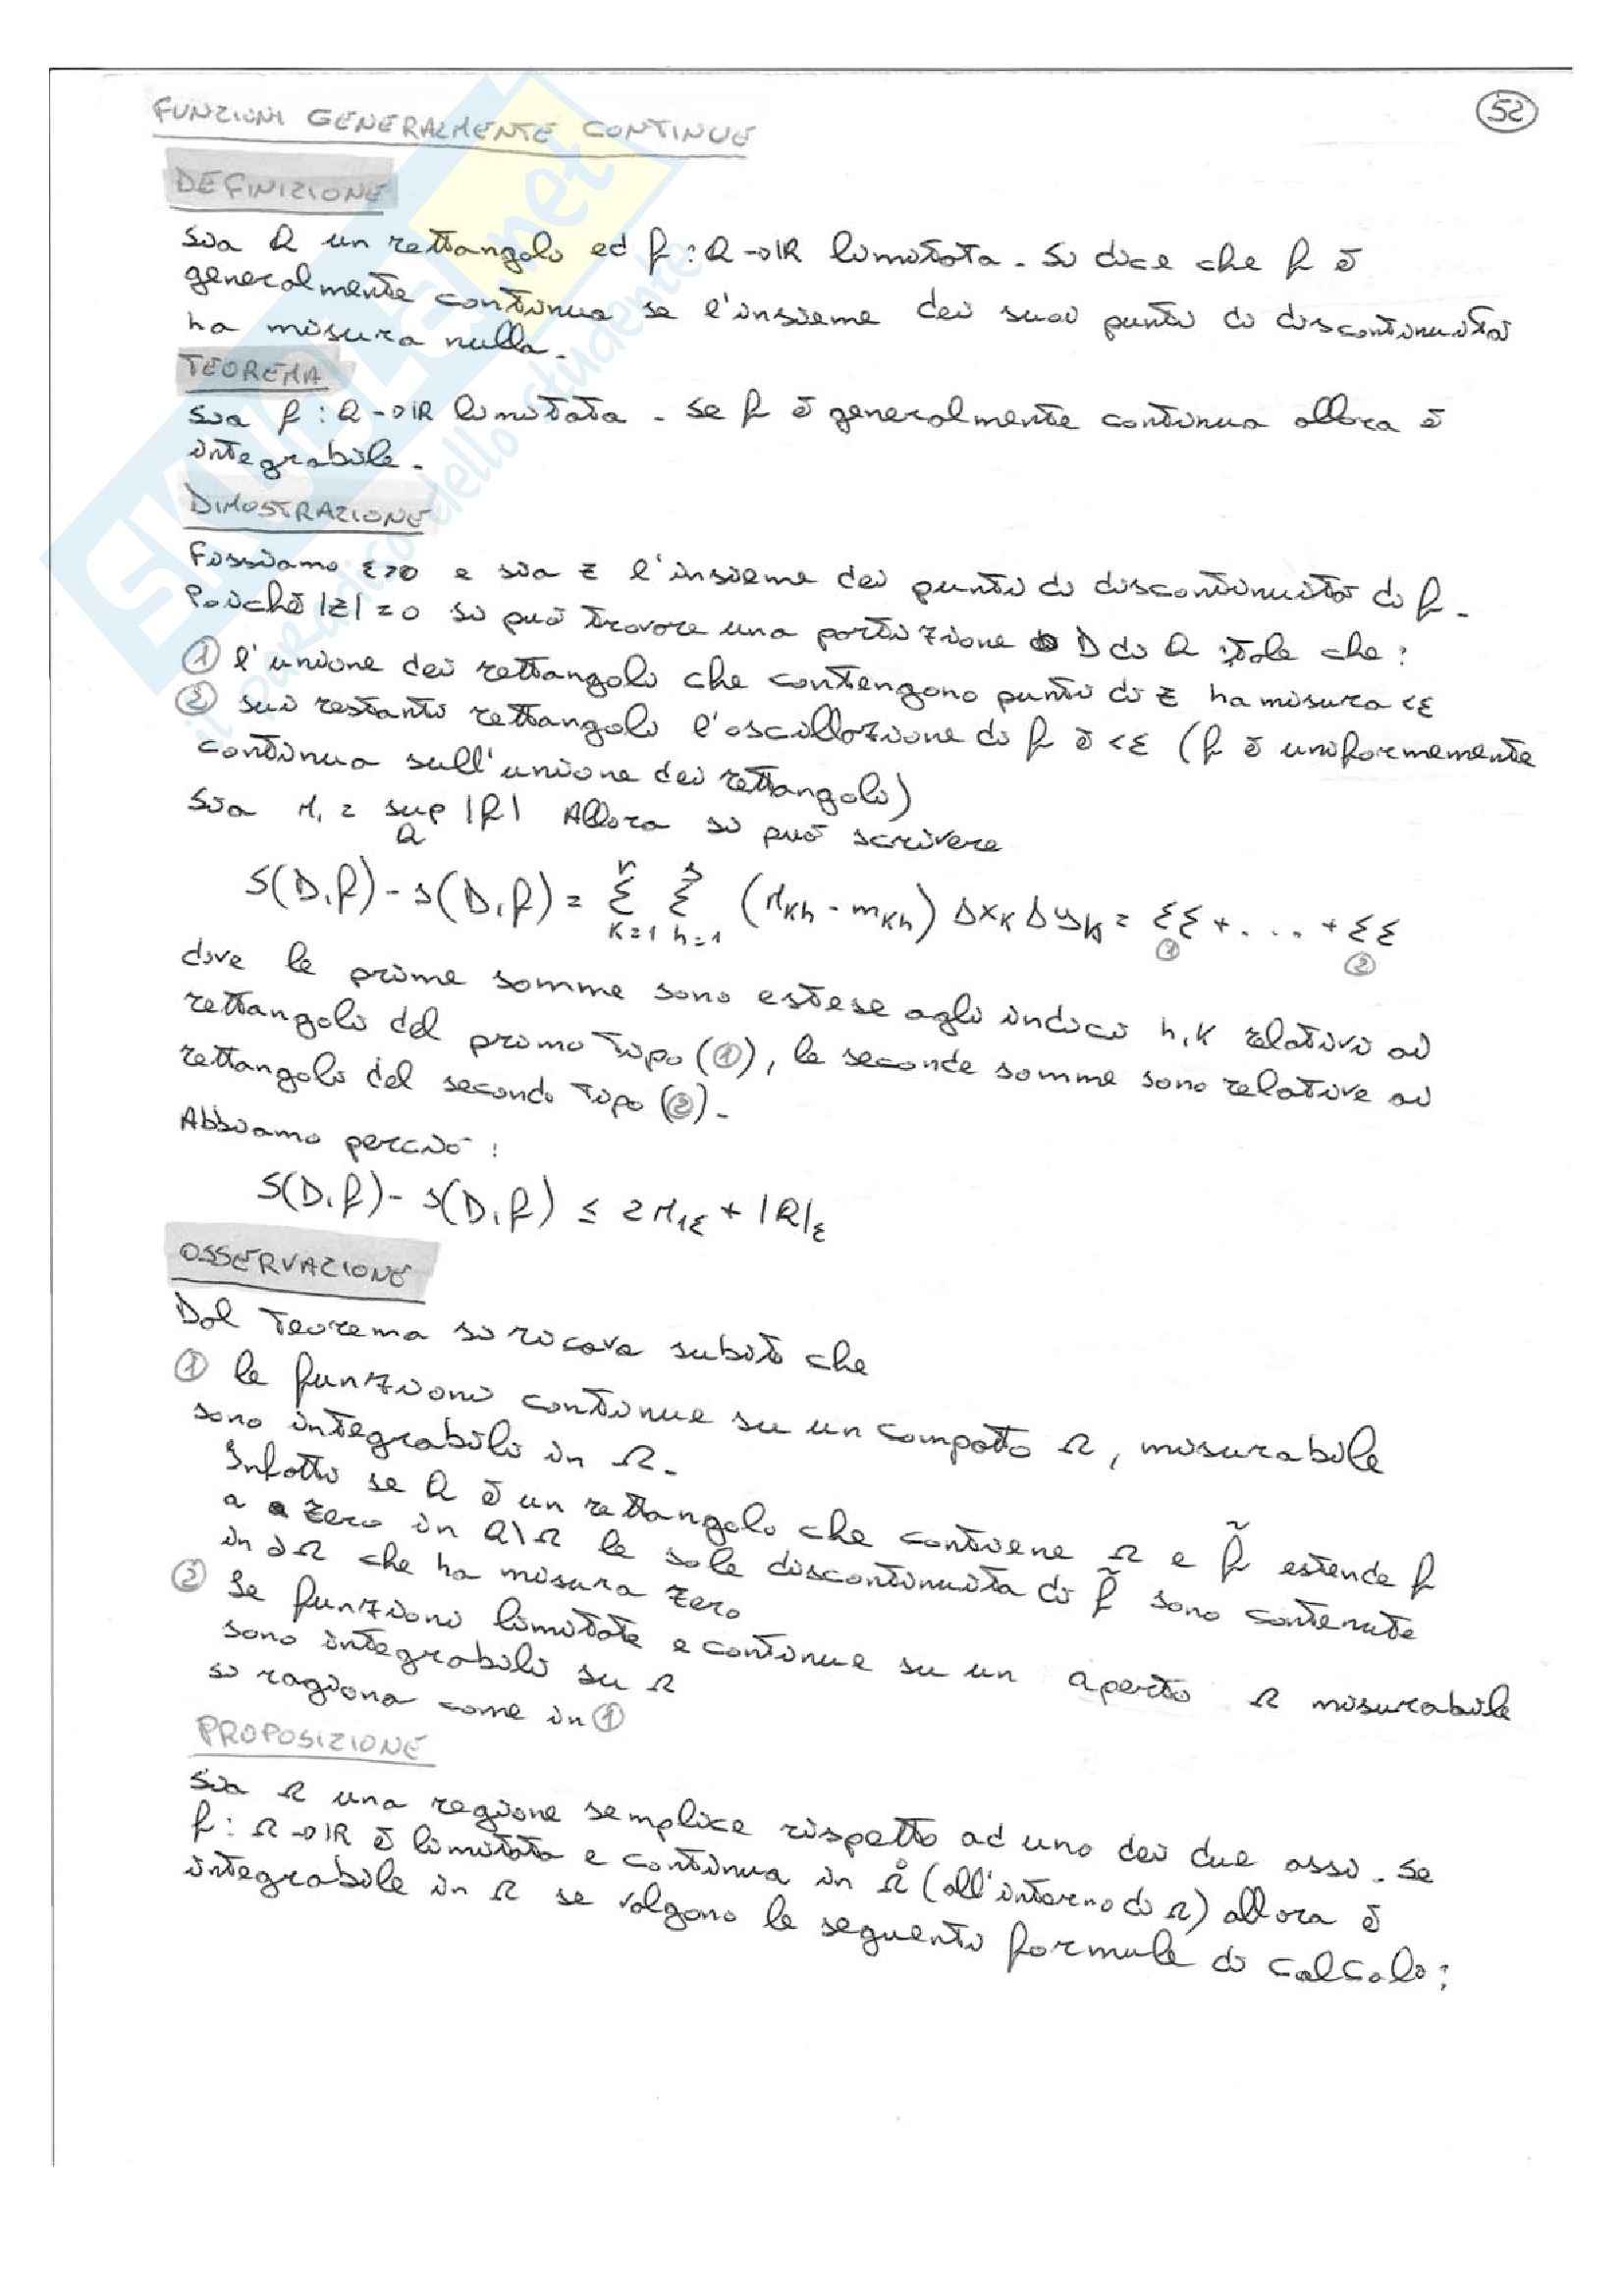 FUNZIONI GENERALMENTE CONTINUE
52
DEFINIZIONE
Sia Q un rettangolo ed f : Q → IR limitata. Si dice che f è
generalmente continua se l'insieme dei suoi punti di discontinuità
ha misura nulla.
TEOREMA
Sia f : Q → IR limitata. Se f è generalmente continua allora è
integrabile.
DIMOSTRAZIONE
Fissiamo ε>0 e sia Z l'insieme dei punti di discontinuità di f.
Poiché |Z| = 0 si può trovare una partizione D di Q tale che:
① l'unione dei rettangoli che contengono punti di Z ha misura <ε
② sui restanti rettangoli l'oscillazione di f è <ε (f è uniformemente
continua sull'unione dei rettangoli)
Sia M₁ = sup |f| Allora si può scrivere
Q
S(D,f) - s(D,f) = Σ Σ (M_kh - m_kh) Δx_k Δy_k = ΣΣ + . . . + ΣΣ
r s
K=1 h=1 ① ②
dove le prime somme sono estese agli indici h,K relativi ai
rettangoli del primo tipo (①), le seconde somme sono relative ai
rettangoli del secondo tipo (②).
Abbiamo perciò:
S(D,f) - s(D,f) ≤ 2M₁ε + |Q|ε
OSSERVAZIONE
Dal Teorema si ricava subito che
① le funzioni continue su un compatto Ω, misurabile
sono integrabili in Ω.
Infatti se Q è un rettangolo che contiene Ω e f̃ estende f
a zero in Q\Ω le sole discontinuità di f̃ sono contenute
in ∂Ω che ha misura zero
② Se funzioni limitate e continue su un aperto Ω misurabile
sono integrabili su Ω
si ragiona come in ①
PROPOSIZIONE
Sia Ω una regione semplice rispetto ad uno dei due assi. Se
f : Ω → IR è limitata e continua in Ω̊ (all'interno di Ω) allora è
integrabile in Ω se valgono le seguenti formule di calcolo:
SKUOLA.net
il paradiso dello studente